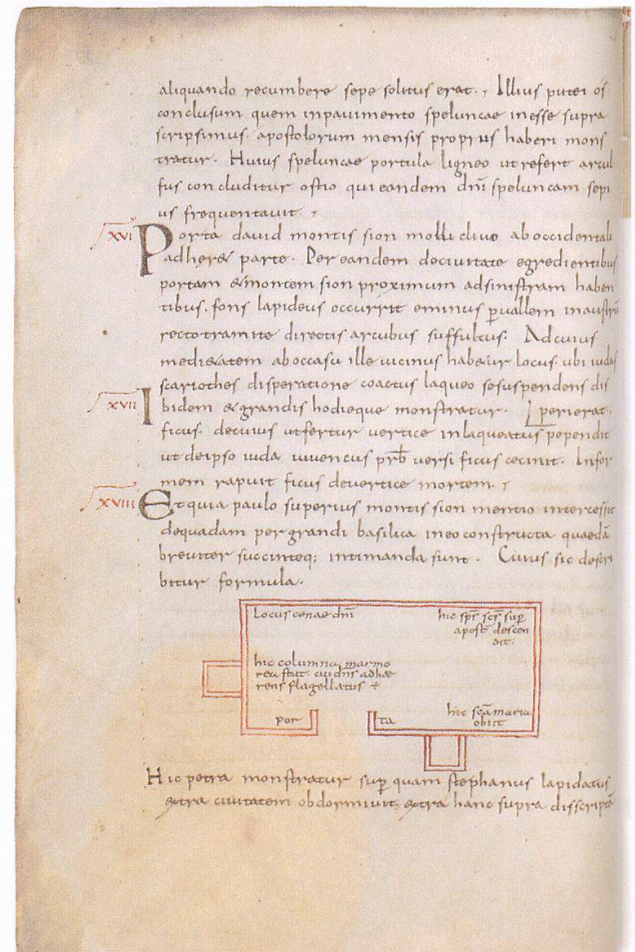 aliquando recumbere sepe solitus erat. Illius putei os
conclusum quem inpavimento speluncae inesse supra
scripsimus. apostolorum mensis propius haberi mons
tratur. Huius speluncae portula ligneo ut refert arcul
fus concluditur ostio qui eandem dñi speluncam sepi
us frequentavit.
xvi Porta david montis sion molli clivo ab occidentali
adheret parte. Per eandem decivitate egredientibus
portam & montem sion proximum adsinistram haben
tibus. fons lapideus occurrit eminus puallem inaustrũ
recto tramite directis arcubus suffultus. Adcuius
medi&atem aboccasu ille vicinus hab&ur locus. ubi iudas
scariothes disperatione coactus laqueo sesuspendens dis
xvii Ibidem & grandis hodieque monstratur. perierat.
ficus. decuius utfertur vertice inlaqueatus pependit
ut deipso iuda iuvencus prb̄ versi ficus cecinit. Infor
mem rapuit ficus devertice mortem.
xviii Et quia paulo superius montis sion mentio intercessit
dequadam pergrandi basilica ineo constructa quaedā
breviter succincteq; intimanda sunt. Cuius sic descri
bitur formula.
Locus cenae dñi
hic sp̄s sc̄s sup̄
apost̄ descen
dit.
hic columna marmo
rea stat. cui dñs adhae
rens flagellatus ÷
por
ta
hic sc̄a maria
obiit
Hic petra monstratur sup̄ quam stephanus lapidatus
extra civitatem obdormivit, extra hanc supra disscriptā